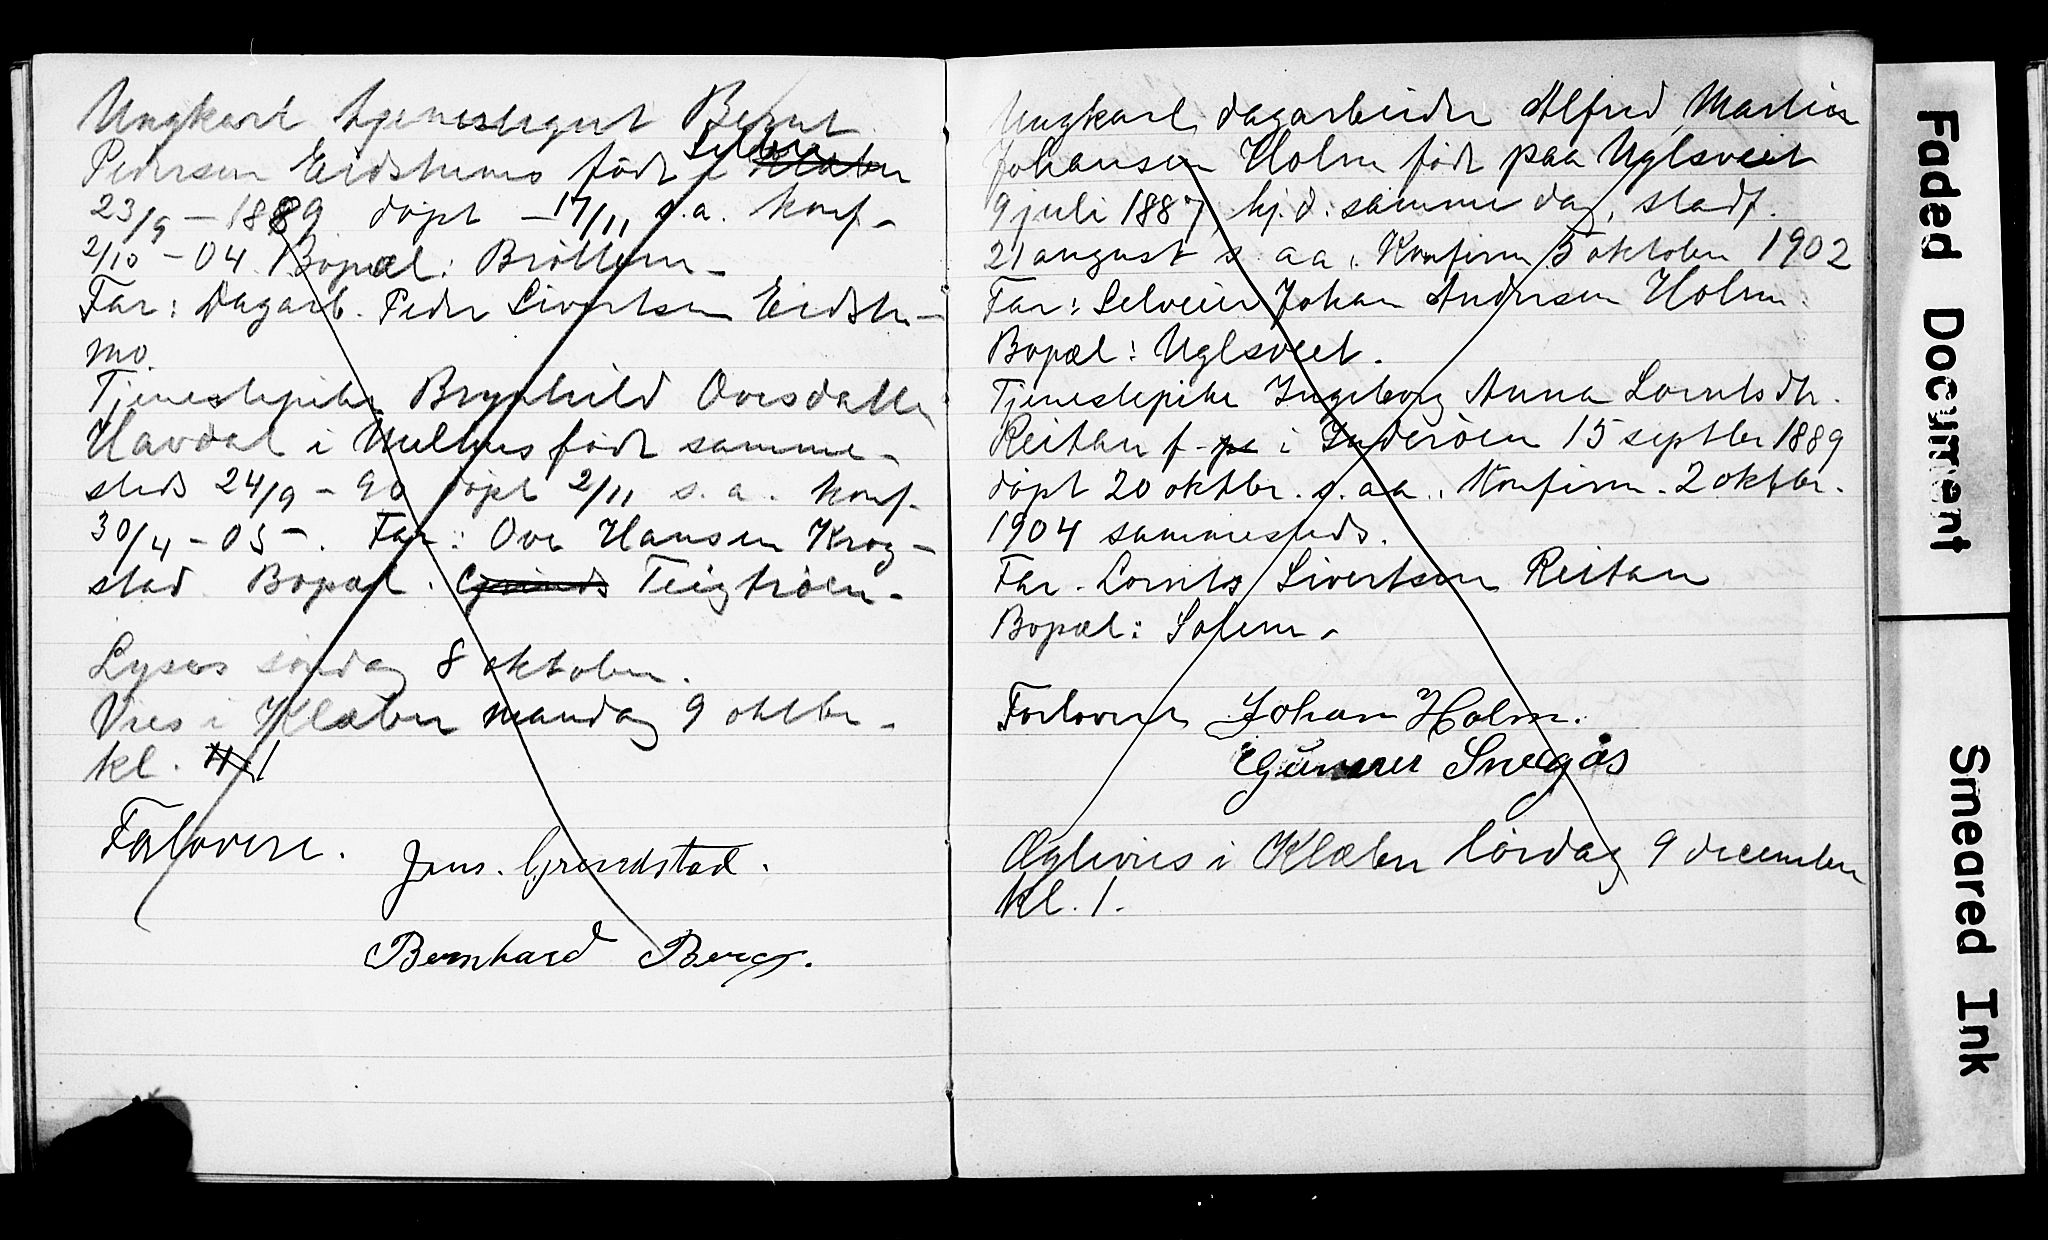 Ungkarl tjenestegut Bernt
Pedersen Eidstumo født i Selbu Klæbu
23/9 - 1889 døpt 17/11 s.a. konf.
2/10 - 04. Bopæl: Brøttem -
Far: Dagarb. Peder Sivertsen Eidstu-
mo.
Tjenestepike Brynhild Ovesdatter
Havdal i Melhus født samme-
steds 24/9 - 90 døpt 2/11 s.a. konf.
30/4 - 05 -. Far: Ove Hansen Krog-
stad Bopæl: Teigtrøen -
Lyses søndag 8 oktober.
Vies i Klæbu mandag 9 oktbr -
kl. 11 1
Forlovere. Jens. Grendstad.
Bernhard Berg.
Ungkarl dagarbeider Alfred Martin
Johansen Holm født paa Uglsveet
9 juli 1887, hj.d. samme dag, stadf.
21 august s. aa. Konfirm. 5 oktober 1902
Far: Selveier Johan Andersen Holm.
Bopæl: Uglsveet.
Tjenestepike Ingeborg Anna Lorntsdtr.
Reitan f. pa i Inderøen 15 septbr 1889
døpt 20 oktbr. s. aa. Konfirm. 2 oktbr.
1904 sammesteds.
Far. Lornts Sivertsen Reitan
Bopæl: Solem -
Forlovere Johan Holm.
Gunner Snegås
Ægtevies i Klæbu lørdag 9 december
kl. 1.
Faded Document
Smeared Ink